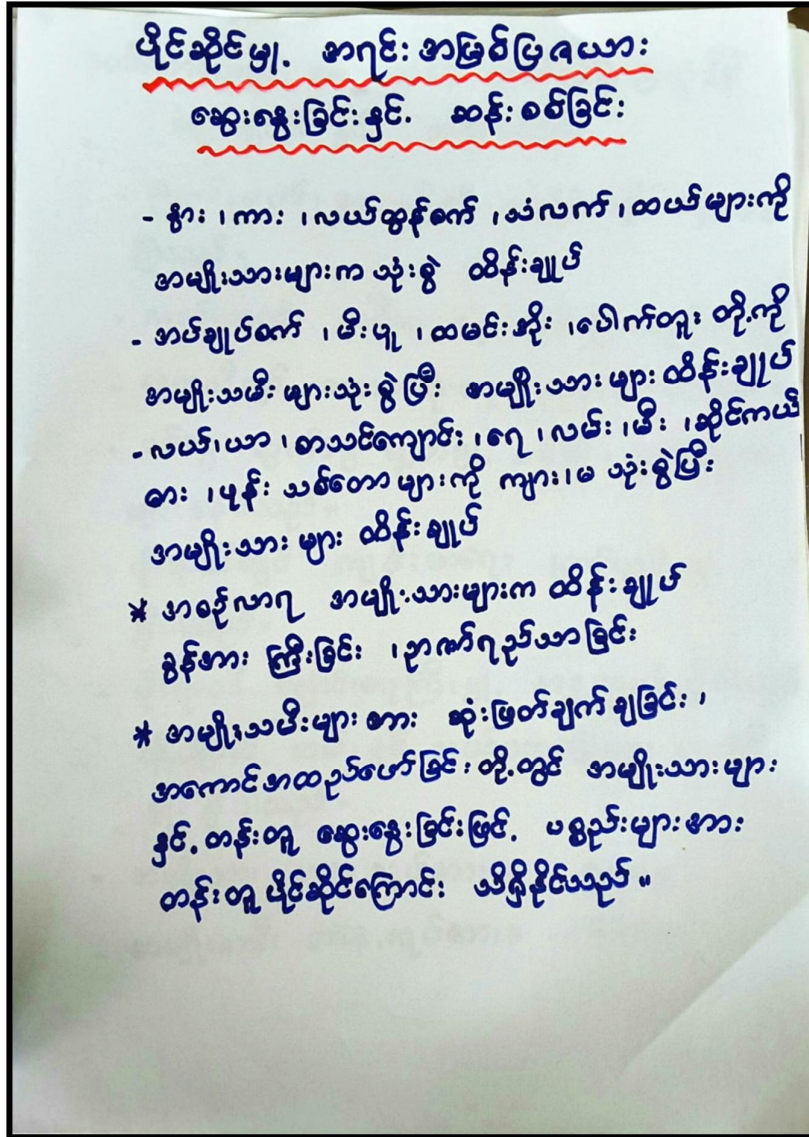 ပိုင်ဆိုင်မှု့ အရင်းအမြစ်ပြဇယား
ဆွေးနွေးခြင်းနှင့် ဆန်းစစ်ခြင်း
- နွား ၊ကား ၊လယ်ထွန်စက် ၊သံလက် ၊ထယ်များကို
အမျိုးသားများက သုံးစွဲ ထိန်းချုပ်
- အပ်ချုပ်စက် ၊မီးပူ ၊ထမင်းအိုး ၊ပေါက်တူး တို့ကို
အမျိုးသမီးများသုံးစွဲပြီး အမျိုးသားများ ထိန်းချုပ်
- လယ်၊ယာ ၊စာသင်ကျောင်း ၊ရေ ၊လမ်း ၊မီး ၊ဆိုင်ကယ်
ဓား ၊ပုန်း သစ်တောများကို ကျား၊မ သုံးစွဲပြီး
အမျိုးသားများ ထိန်းချုပ်
* အစဉ်လာရ အမျိုးသားများက ထိန်းချုပ်
ခွန်အား ကြီးခြင်း ၊ဉာဏ်ရည်သာခြင်း
* အမျိုးသမီးများအား ဆုံးဖြတ်ချက်ချခြင်း ၊
အကောင်အထည်ဖော်ခြင်းတို့တွင် အမျိုးသားများ
နှင့် တန်းတူ ဆွေးနွေးခြင်းဖြင့် ပစ္စည်းများအား
တန်းတူပိုင်ဆိုင်ကြောင်း သိရှိနိုင်သည် ။